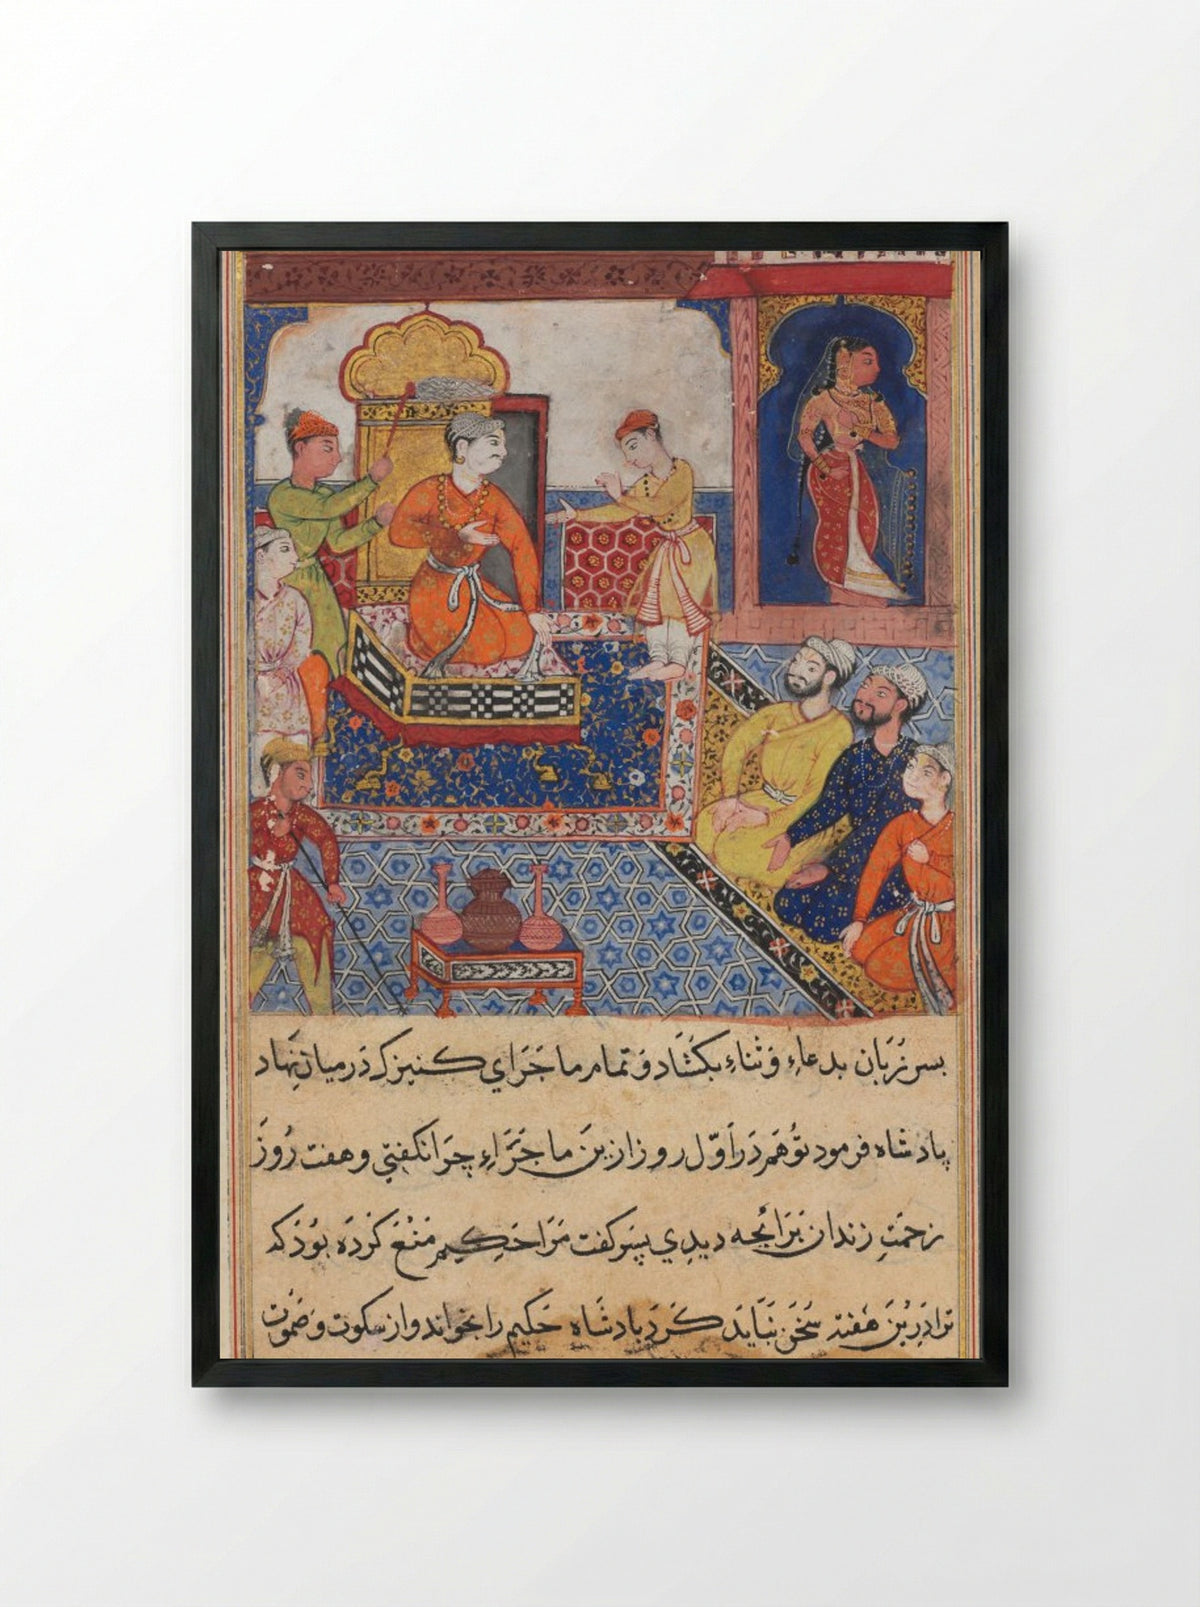 بسر زبان بدعاء و ثناء بكشاد و تمام ماجراي كنيزك در ميان نهاد
پادشاه فرمود تو هم در اول روز ازين ماجراء چرا نكفتي و هفت روز
زحمت زندان براىچه ديدي پسر كفت مرا حكيم منع كرده بود كه
ترا درين هفته سخن نبايد كرد پادشاه حكيم را بخواند و از سكوت و صموت